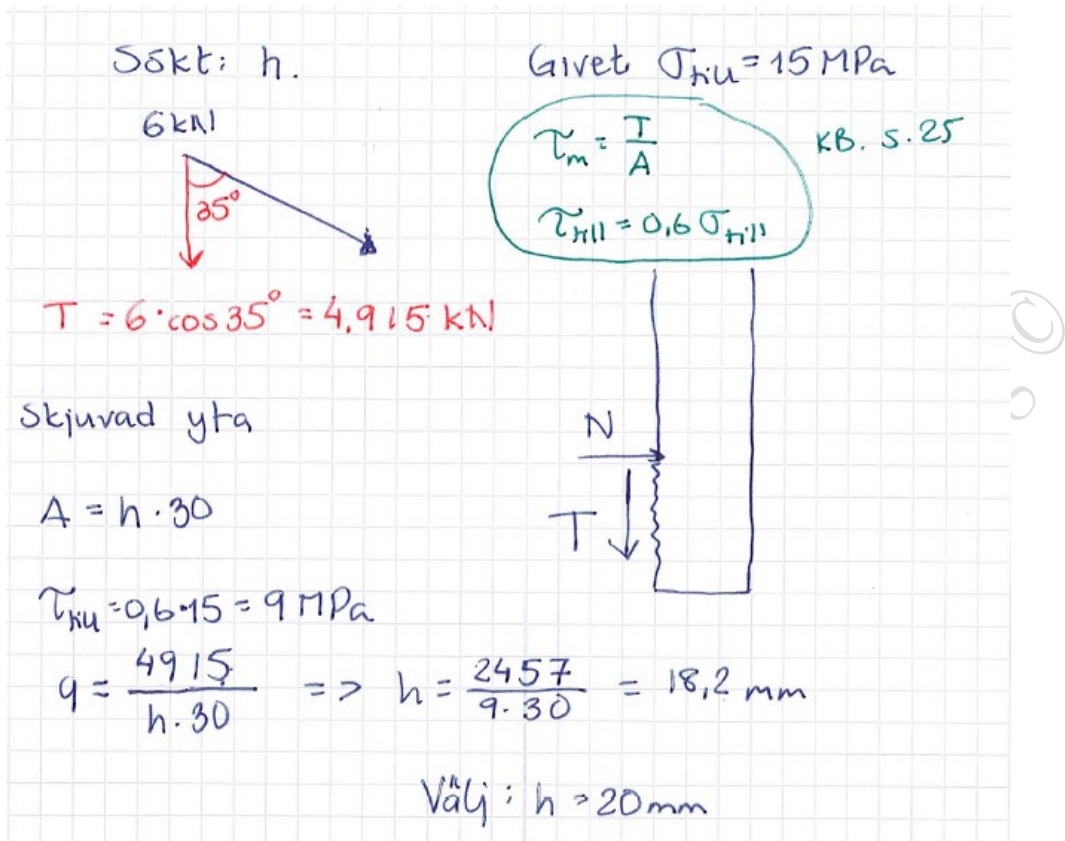 Sökt: h.
Givet σtill = 15 MPa
6 kN
35°
τm = T/A
τtill = 0,6 σtill
KB. s. 25
T = 6·cos 35° = 4,915 kN
Skjuvad yta
N
T
A = h · 30
τtill = 0,6·15 = 9 MPa
9 = 4915/(h·30) => h = 2457/(9·30) = 18,2 mm
Välj: h = 20 mm
©